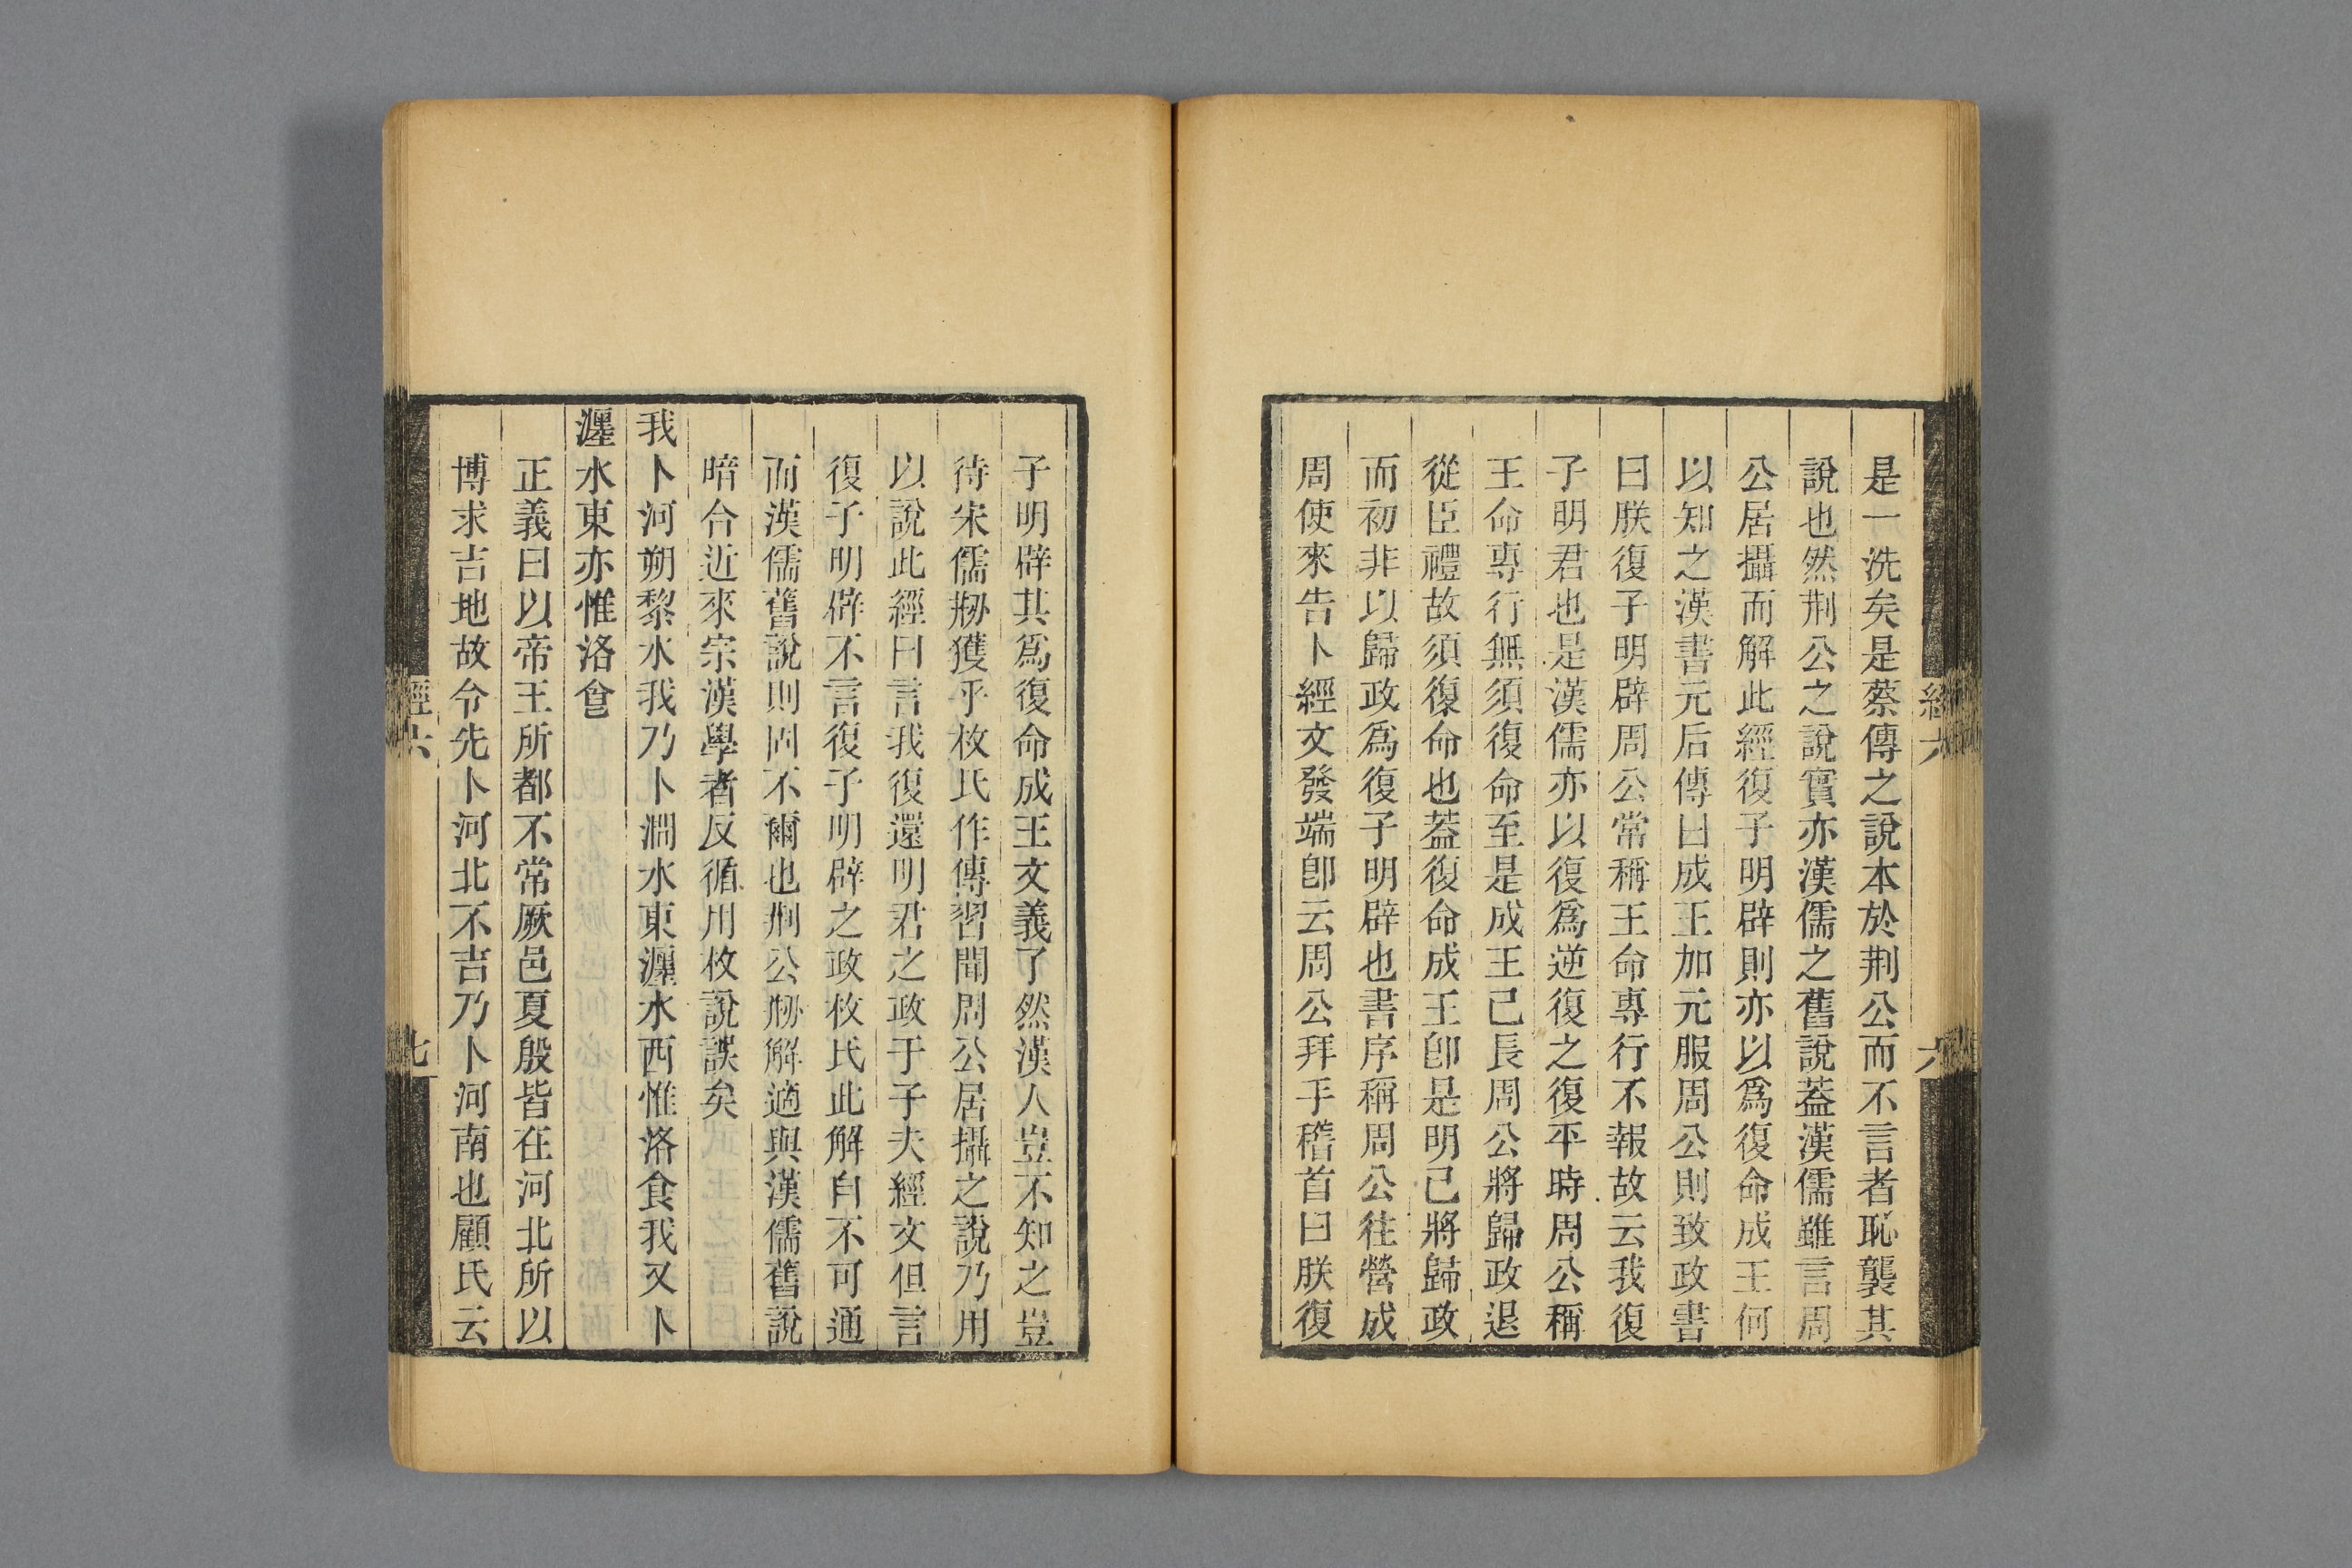 是一洗矣是蔡傳之說本於荆公而不言者恥襲其
說也然荆公之說實亦漢儒之舊說葢漢儒雖言周
公居攝而解此經復子明辟則亦以爲復命成王何
以知之漢書元后傳曰成王加元服周公則致政書
曰朕復子明辟周公常稱王命專行不報故云我復
子明君也是漢儒亦以復爲逆復之復平時周公稱
王命專行無須復命至是成王已長周公將歸政退
從臣禮故須復命也葢復命成王卽是明己將歸政
而初非以歸政爲復子明辟也書序稱周公往營成
周使來告卜經文發端卽云周公拜手稽首曰朕復
經六
六
子明辟其爲復命成王文義了然漢人豈不知之豈
待宋儒刱獲乎枚氏作傳習聞周公居攝之說乃用
以說此經曰言我復還明君之政于子夫經文但言
復子明辟不言復子明辟之政枚氏此解自不可通
而漢儒舊說則固不爾也荆公刱解適與漢儒舊說
暗合近來宗漢學者反循用枚說誤矣
我卜河朔黎水我乃卜澗水東瀍水西惟洛食我又卜
瀍水東亦惟洛食
正義曰以帝王所都不常厥邑夏殷皆在河北所以
博求吉地故令先卜河北不吉乃卜河南也顧氏云
經六
七